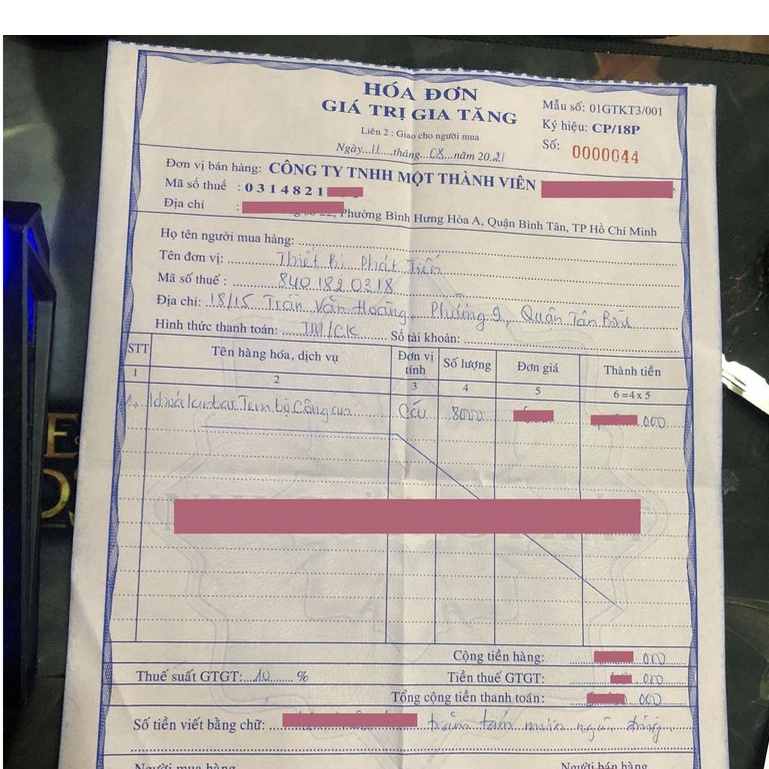 HÓA ĐƠN
GIÁ TRỊ GIA TĂNG
Liên 2 : Giao cho người mua
Ngày 11 tháng 08 năm 2021
Mẫu số: 01GTKT3/001
Ký hiệu: CP/18P
Số: 0000044
Đơn vị bán hàng: CÔNG TY TNHH MỘT THÀNH VIÊN
Mã số thuế : 0314821
Địa chỉ : Phường Bình Hưng Hòa A, Quận Bình Tân, TP Hồ Chí Minh
Họ tên người mua hàng:
Tên đơn vị: Thiết Bị Phát
Mã số thuế : 8401820318
Địa chỉ: 18/15 Trần Văn Hoàng, Phường 9, Quận Tân
Hình thức thanh toán: TM/CK Số tài khoản:
STT Tên hàng hóa, dịch vụ Đơn vị tính Số lượng Đơn giá Thành tiền
1 2 3 4 5 6 = 4 x 5
Tem bộ Công an 000
Cộng tiền hàng: 000
Thuế suất GTGT: 10 % Tiền thuế GTGT: 000
Tổng cộng tiền thanh toán: 000
Số tiền viết bằng chữ: trăm tám mươi ngàn đồng
Người mua hàng Người bán hàng